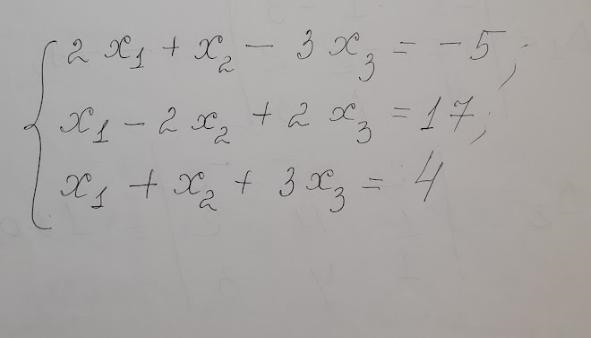 2x₁ + x₂ - 3x₃ = -5;
x₁ - 2x₂ + 2x₃ = 17;
x₁ + x₂ + 3x₃ = 4